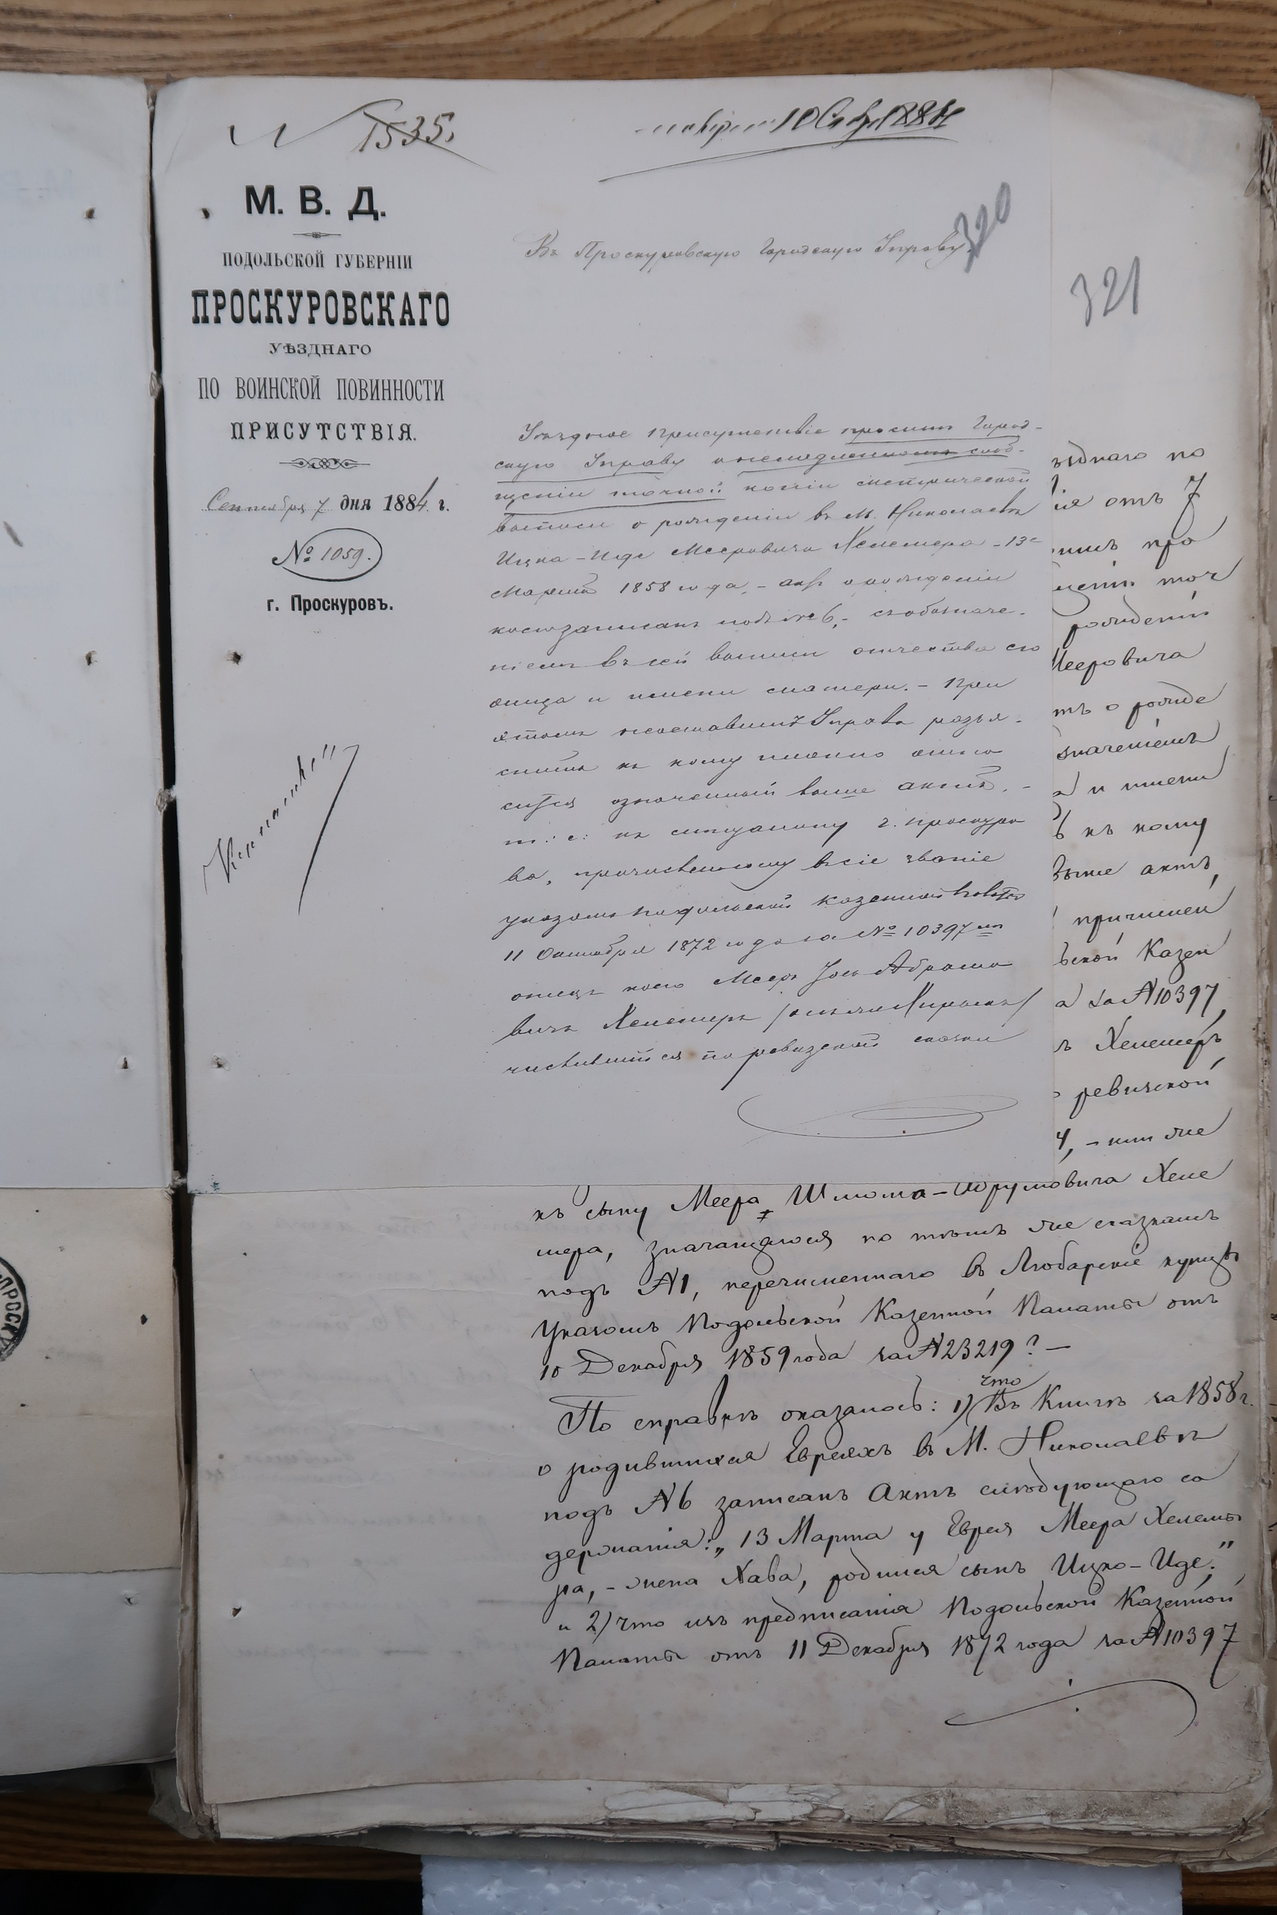 N 1535.
10 Сент. 1884
М. В. Д.
ПОДОЛЬСКОЙ ГУБЕРНІИ
ПРОСКУРОВСКАГО
УѢЗДНАГО
ПО ВОИНСКОЙ ПОВИННОСТИ
ПРИСУТСТВІЯ.
Сентября 7 дня 1884 г.
№ 1059.
г. Проскуровъ.
320
Въ Проскуровскую Городскую Управу
Уѣздное Присутствіе проситъ Город-
скую Управу о немедленномъ сооб-
щеніи точной копіи метрической
выписи о рожденіи въ М. Николаевкѣ
Ицка-Иде Мееровича Хелемера - 13-
Марта 1858 года, - актъ о рожденіи
коего записанъ подъ № 6, - съ обозначе-
ніемъ въ сей выписи отчества его
отца и имени матери. - При
этомъ неоставитъ Управа разъя-
снить къ кому именно отно-
сится означенный выше актъ, -
т: е: къ мещанину г. Проскуро
ва, причисленному въ сіе званіе
указомъ Подольской Казенной Палаты
11 Октября 1872 года за № 10397
отецъ коего Меер Іось Абрамо
вичъ Хелемеръ
числившійся по ревизской сказки
321
ѣзднаго по
іе отъ 7
ситъ про
щеніи точ
рожденіи
Мееровича
тъ о рожде
значеніемъ
а и имени
ъ къ кому
выше актъ,
причислен
ьской Казен
а за № 10397,
ъ Хелемеръ
о ревизской
4, - или же
къ сыну Меера Шмома-Абрумовича Хеле
мера, значащагося по тѣмъ же сказкамъ
подъ № 1, перечисленнаго въ Любарскіе купцы
Указомъ Подольской Казенной Палаты отъ
10 Декабря 1859 года за № 23219? -
По справкѣ оказалось: 1) что Въ Книгѣ за 1858 г.
о родившихся Евреяхъ въ М. Николаевкѣ
подъ № 6 записанъ Актъ слѣдующаго со
держанія: „13 Марта у Еврея Меера Хелеме
ра, - жена Хава, родился сынъ Ицко-Иде."
и 2) что изъ предписанія Подольской Казенной
Палаты отъ 11 Декабря 1872 года за № 10397